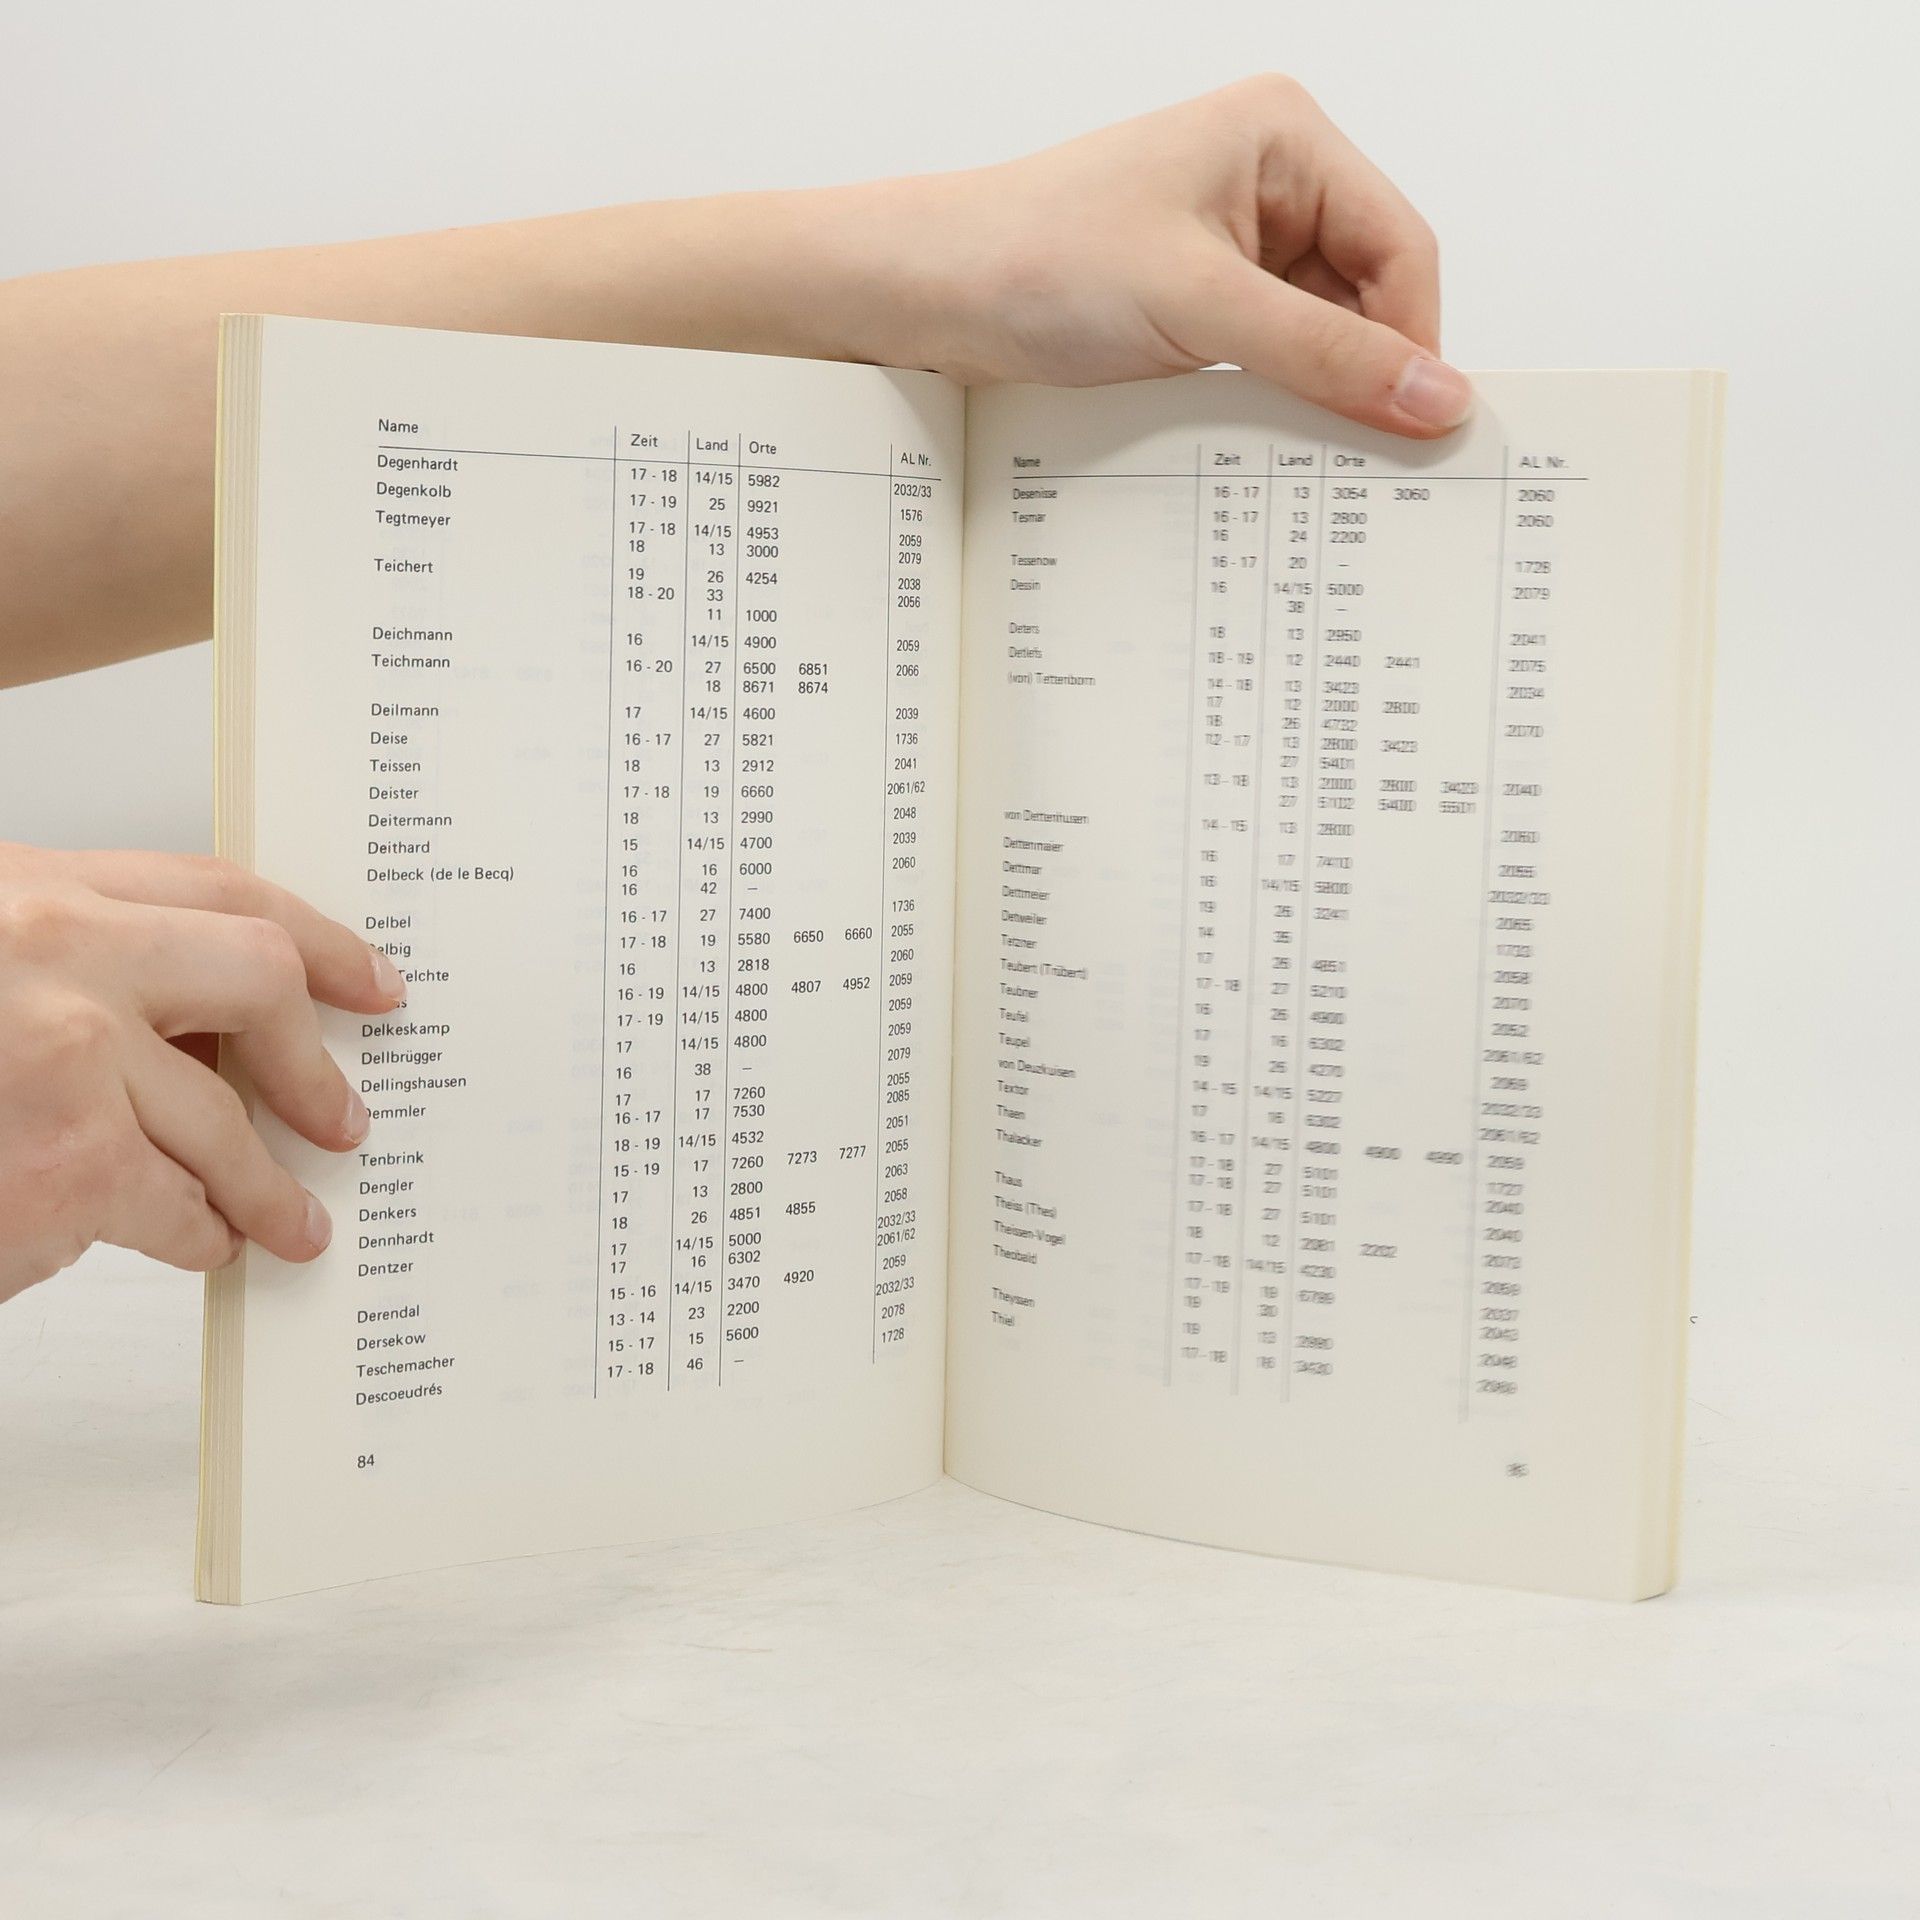 Name Zeit Land Orte AL Nr.
Degenhardt 17 - 18 14/15 5982 2032/33
Degenkolb 17 - 19 25 9921 1576
Tegtmeyer 17 - 18 14/15 4953 2059
18 13 3000 2079
Teichert 19 26 4254 2038
18 - 20 33 2056
11 1000
Deichmann 16 14/15 4900 2059
Teichmann 16 - 20 27 6500 6851 2066
18 8671 8674
Deilmann 17 14/15 4600 2039
Deise 16 - 17 27 5821 1736
Teissen 18 13 2912 2041
Deister 17 - 18 19 6660 2061/62
Deitermann 18 13 2990 2048
Deithard 15 14/15 4700 2039
Delbeck (de le Becq) 16 16 6000 2060
16 42 –
Delbel 16 - 17 27 7400 1736
elbig 17 - 18 19 5580 6650 6660 2055
Telchte 16 13 2818 2060
16 - 19 14/15 4800 4807 4952 2059
Delkeskamp 17 - 19 14/15 4800 2059
Dellbrügger 17 14/15 4800 2059
Dellingshausen 16 38 – 2079
Demmler 17 17 7260 2055
16 - 17 17 7530 2085
Tenbrink 18 - 19 14/15 4532 2051
Dengler 15 - 19 17 7260 7273 7277 2055
Denkers 17 13 2800 2063
Dennhardt 18 26 4851 4855 2058
Dentzer 17 14/15 5000 2032/33
17 16 6302 2061/62
Derendal 15 - 16 14/15 3470 4920 2059
Dersekow 13 - 14 23 2200 2032/33
Teschemacher 15 - 17 15 5600 2078
Descoeudrés 17 - 18 46 – 1728
84
Name Zeit Land Orte AL Nr.
Desenisse 16 - 17 13 3054 3060 2060
Tesmar 16 - 17 13 2800 2060
16 24 2200
Tessenow 16 - 17 20 – 1728
Dessin 16 14/15 5000 2079
38 –
Deters 18 13 2950 2041
Detlefs 18 - 19 12 2440 2441 2075
(von) Tettenborn 14 - 18 13 3423 2034
17 12 2000 2800
18 26 4732 2070
12 - 17 13 2800 3423
27 5401
13 - 18 13 2000 2800 3423 2040
27 5102 5400 5501
von Dettenhusen 14 - 15 13 2800 2060
Dettenmaier 16 17 7410 2055
Dettmar 16 14/15 5800 2032/33
Dettmeier 19 26 3241 2065
Detweiler 14 1733
Tetzner 17 26 4851 2058
Teubert (Trübert) 17 - 18 27 5210 2070
Teubner 16 26 4900 2052
Teufel 17 16 6302 2061/62
Teupel 19 26 4270 2069
14 - 15 14/15 5227 2032/33
Textor 17 16 6302 2061/62
Thaen 16 - 17 14/15 4800 4900 4990 2059
Thalacker 17 - 18 27 5101 1727
17 - 18 27 5101 2040
Thaus 17 - 18 27 5101 2040
Theiss (Thes) 18 12 2202 2073
Theissen-Vogel 17 - 18 14/15 4230 2059
Theobald 17 - 18 19 2037
19 30
Theyssen 19 13
Thiel 17 - 18 16